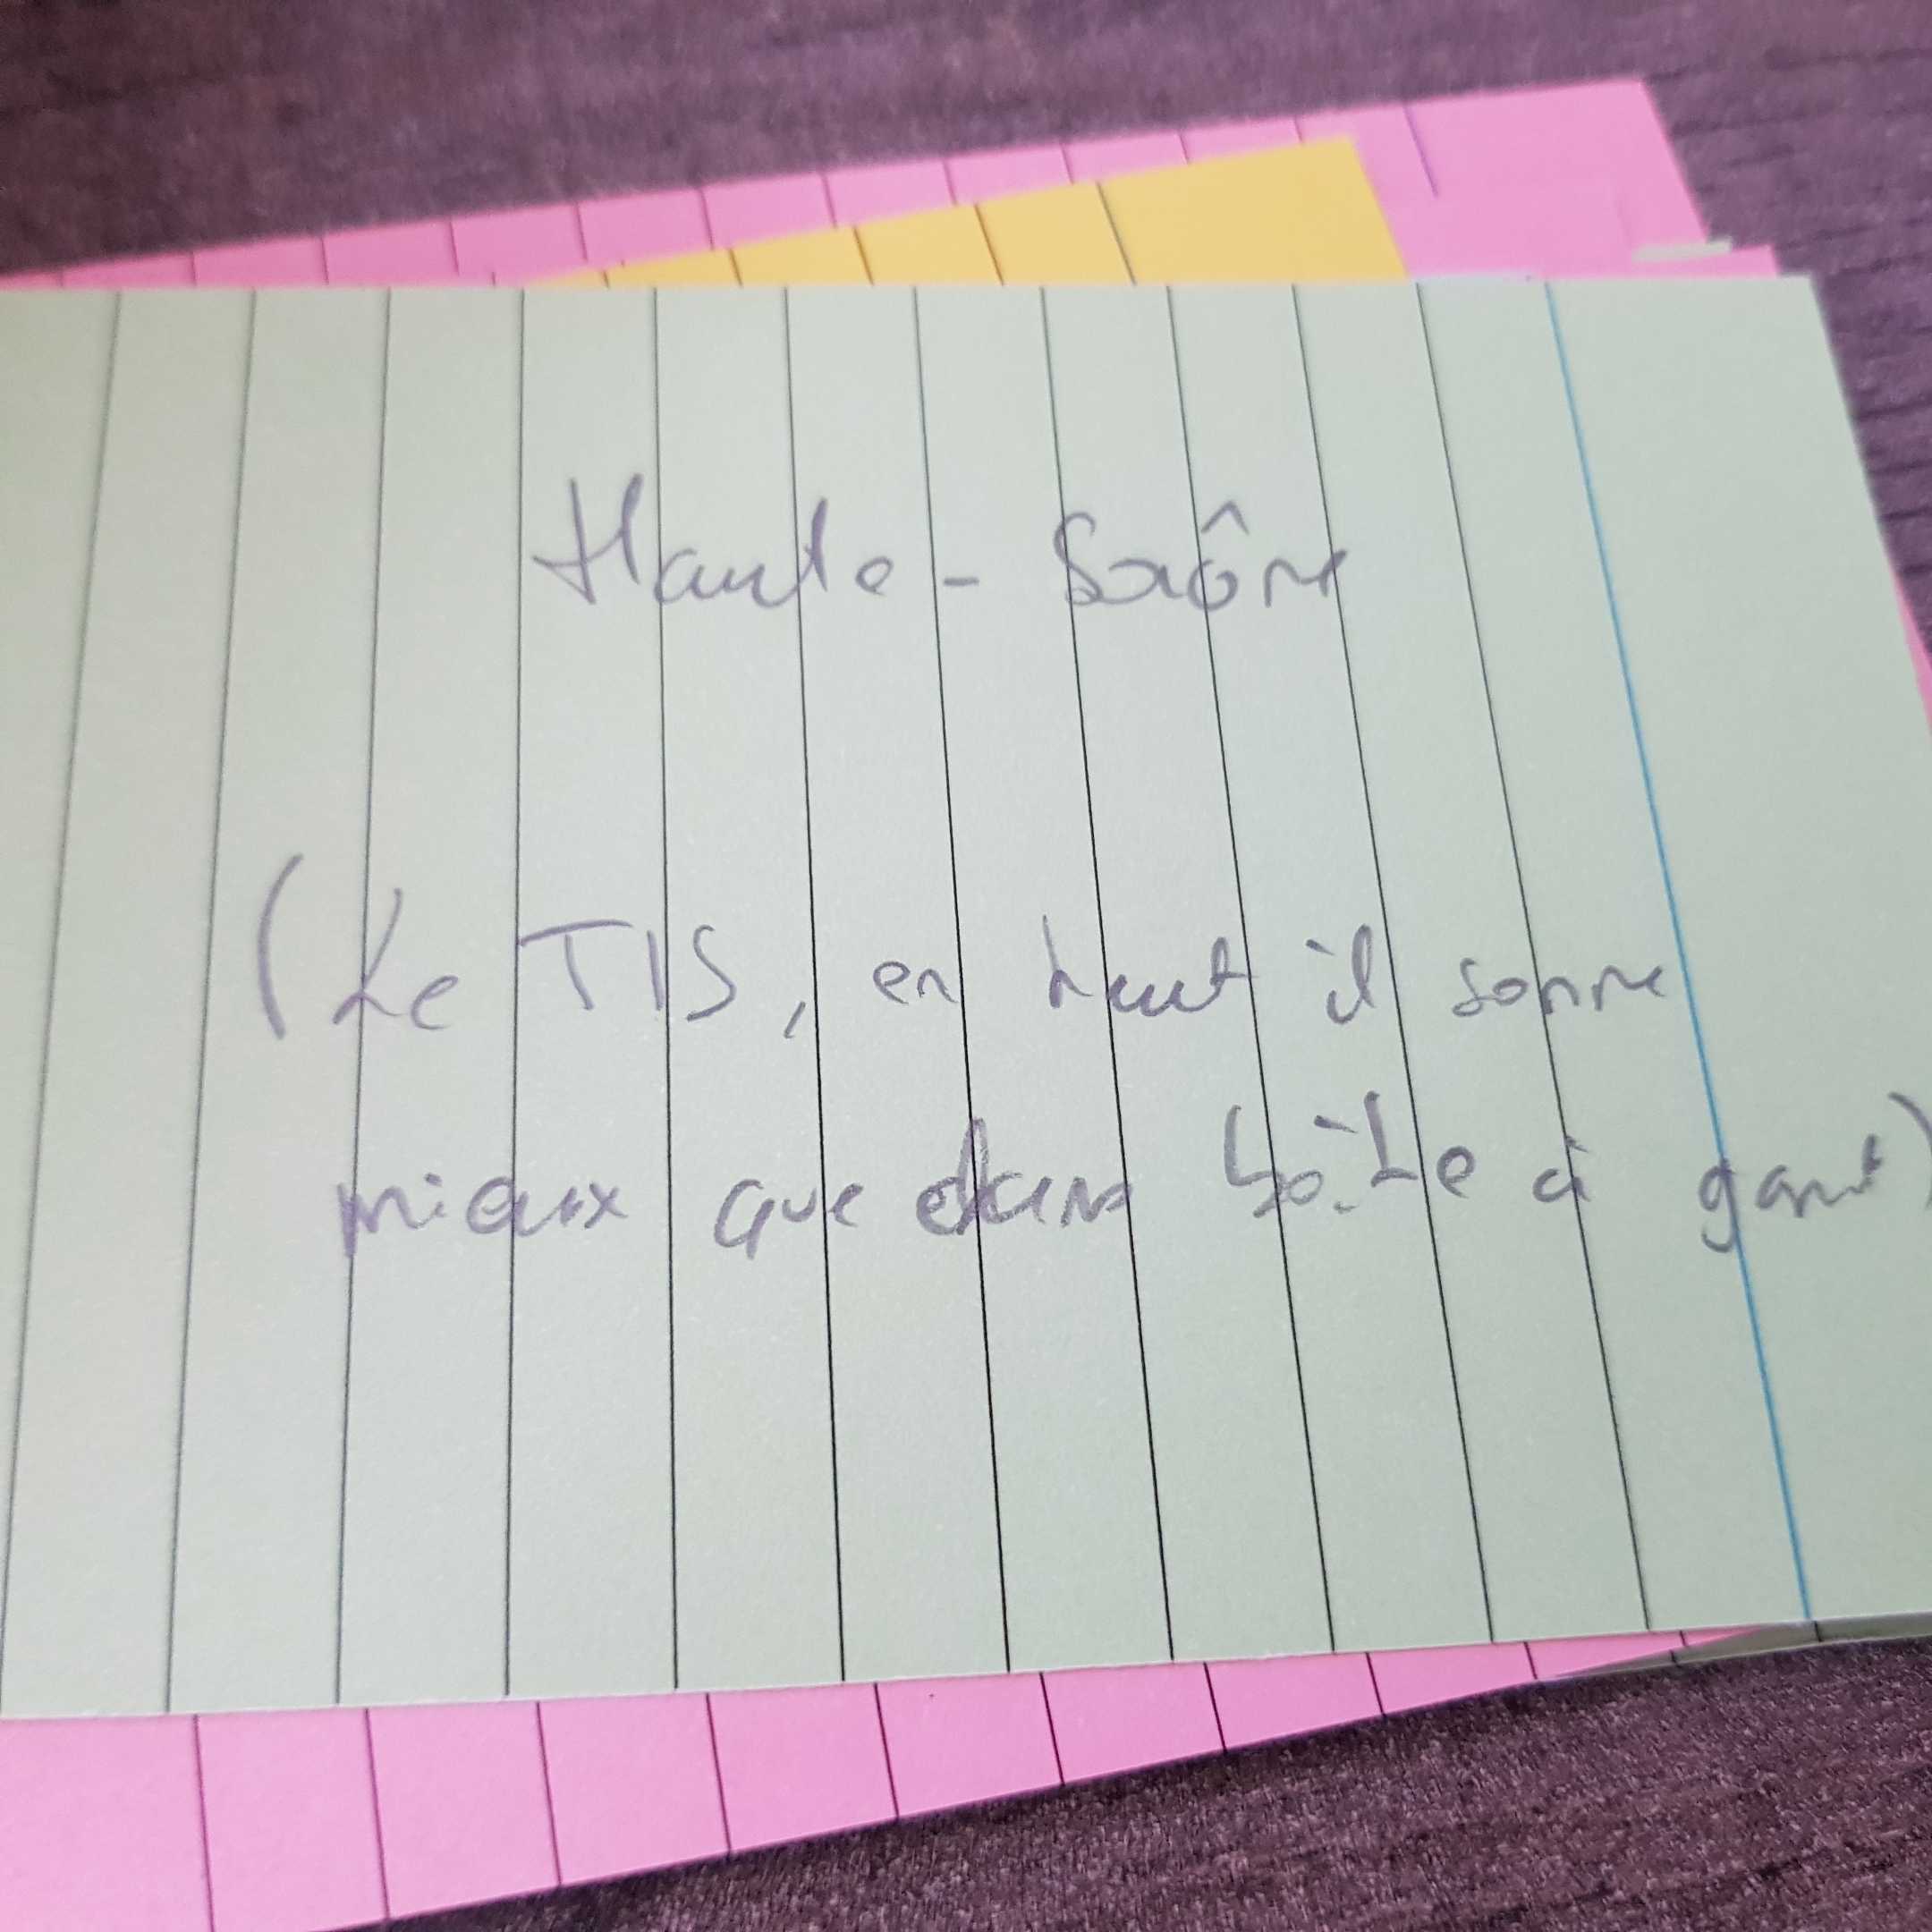 Haute-Saône
(Le TIS, en haut il sonne
mieux que dans boîte à gant)